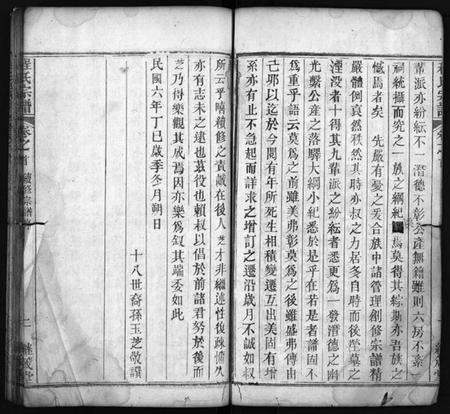 輩派亦紛紜不一潛德不彰公產無籍雖則六房不紊
祠統攝而究之一族之綱紀
憾焉者矣　先嚴有憂之爰合族中諸管理創修宗譜精
嚴體例哀然秩然其時亦叔之力居冬自時而後塋墓之
湮沒者十得其九輩派之紛紜者悉更為一發潛德之幽
光繫公產之落驛大綱小紀悉於是乎在若是者譜固不
為重乎語云莫為之前雖美弗彰莫為之後雖盛弗傳由
己耶以迄於今閱有年所死生相積變遷互出美固有增
系亦有止不急起而詳求之增訂之遷沿歲月不誠如叔
所云乎嘖續修之責蔵在後人芝才非繼述性復疎慵久
亦有志未之逮也茲役也賴叔以倡於前諸君努於後而
芝乃得樂觀其成焉因亦樂為敘其端委如此
民國六年丁巳歲季冬月朔日
十八世裔孫玉芝敬譔
程氏宗譜
卷之首
續修宗譜
二